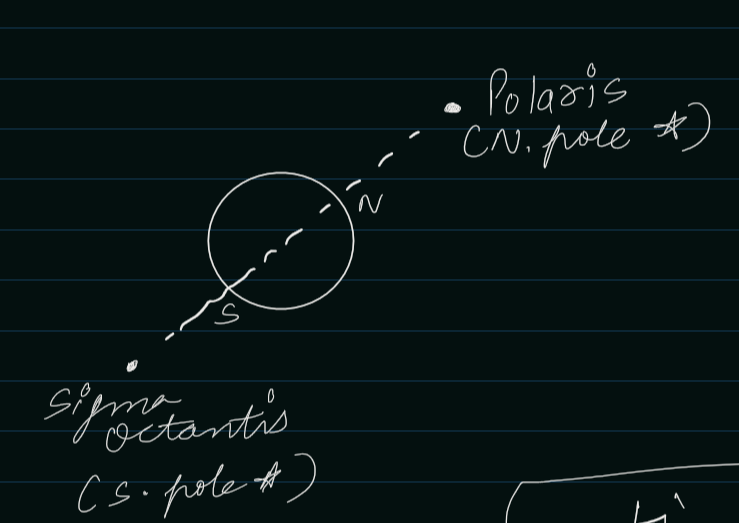 Polaris
(N. pole ☆)
N
S
Sigma
Octantis
(S. pole ☆)